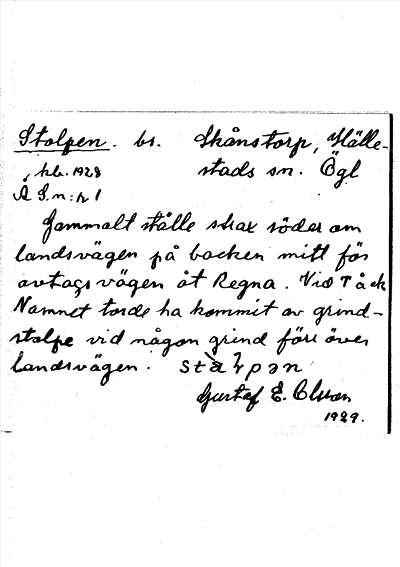 Stolpen. bs. Skånstorp, Hälle-
kb. 1928 stads sn. Ögl
Å S.n:r 1
Gammalt ställe strax söder om
landsvägen på backen mitt för
avtagsvägen åt Regna. Vid Tåck
Namnet torde ha kommit av grind-
stolpe vid någon grind förr över
landsvägen.
Gustaf E. Olsson
1929.